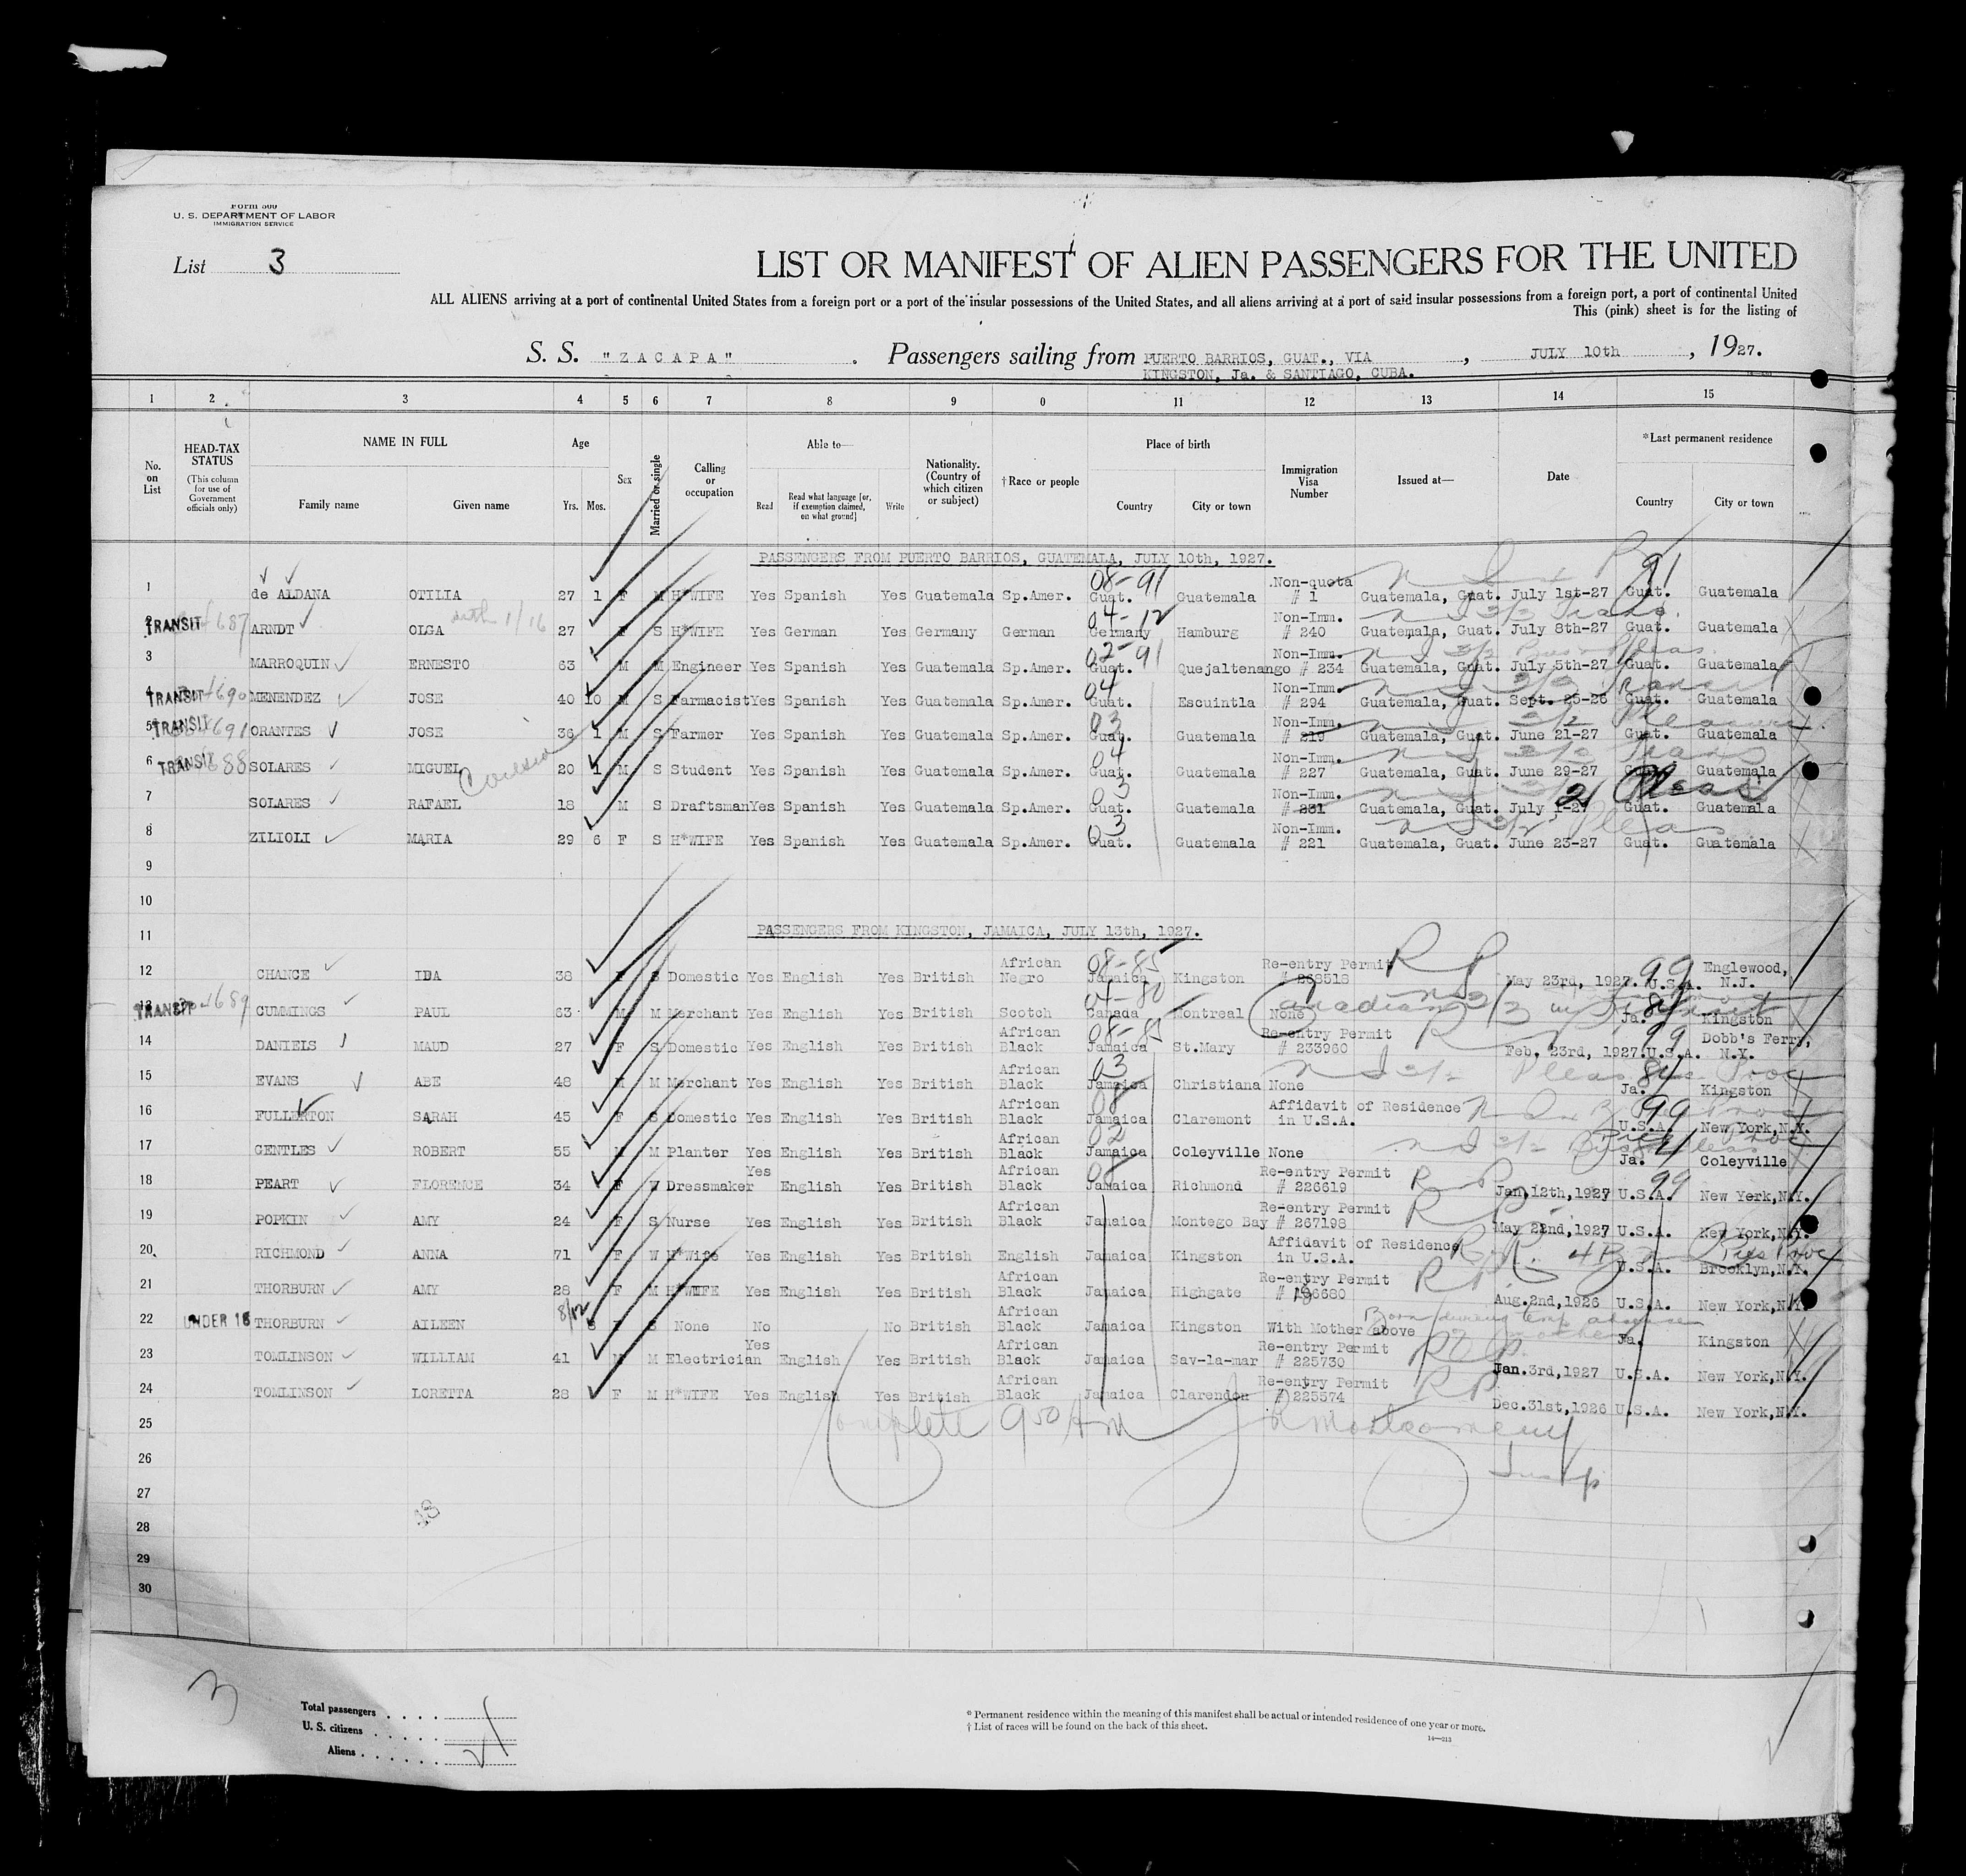 Form 500
U. S. DEPARTMENT OF LABOR
IMMIGRATION SERVICE
List 3
LIST OR MANIFEST OF ALIEN PASSENGERS FOR THE UNITED
ALL ALIENS arriving at a port of continental United States from a foreign port or a port of the insular possessions of the United States, and all aliens arriving at a port of said insular possessions from a foreign port, a port of continental United
This (pink) sheet is for the listing of
S. S. "ZACAPA" . Passengers sailing from PUERTO BARRIOS, GUAT., VIA , JULY 10th , 1927.
KINGSTON, Ja. & SANTIAGO, CUBA.
1 2 3 4 5 6 7 8 9 0 11 12 13 14 15
No. on List
HEAD-TAX STATUS (This column for use of Government officials only)
NAME IN FULL Family name Given name
Age Yrs. Mos.
Sex
Married or single
Calling or occupation
Able to— Read Read what language [or, if exemption claimed, on what ground] Write
Nationality. (Country of which citizen or subject)
†Race or people
Place of birth Country City or town
Immigration Visa Number
Issued at—
Date
*Last permanent residence Country City or town
PASSENGERS FROM PUERTO BARRIOS, GUATEMALA, JULY 10th, 1927.
1 de ALDANA OTILIA 27 1 F M H*WIFE Yes Spanish Yes Guatemala Sp.Amer. 08-91 Guat. Guatemala Non-quota # 1 Guatemala, Guat. July 1st-27 91 Guat. Guatemala
2 TRANSIT 687 ARNDT OLGA 27 F S H*WIFE Yes German Yes Germany German 04-12 Germany Hamburg Non-Imm. # 240 Guatemala, Guat. July 8th-27 Guat. Guatemala
3 MARROQUIN ERNESTO 63 M M Engineer Yes Spanish Yes Guatemala Sp.Amer. 02-91 Guat. Quejaltenango Non-Imm. # 234 Guatemala, Guat. July 5th-27 Guat. Guatemala
4 TRANSIT 690 MENENDEZ JOSE 40 10 M S Farmacist Yes Spanish Yes Guatemala Sp.Amer. 04 Guat. Escuintla Non-Imm. # 294 Guatemala, Guat. Sept. 25-26 Guat. Guatemala
5 TRANSIT 691 ORANTES JOSE 36 1 M S Farmer Yes Spanish Yes Guatemala Sp.Amer. 03 Guat. Guatemala Non-Imm. # 219 Guatemala, Guat. June 21-27 Guat. Guatemala
6 TRANSIT 688 SOLARES MIGUEL 20 1 M S Student Yes Spanish Yes Guatemala Sp.Amer. 04 Guat. Guatemala Non-Imm. # 227 Guatemala, Guat. June 29-27 Guat. Guatemala
7 SOLARES RAFAEL 18 M S Draftsman Yes Spanish Yes Guatemala Sp.Amer. 03 Guat. Guatemala Non-Imm. # 231 Guatemala, Guat. July 1-27 Guat. Guatemala
8 ZILIOLI MARIA 29 6 F S H*WIFE Yes Spanish Yes Guatemala Sp.Amer. 03 Guat. Guatemala Non-Imm. # 221 Guatemala, Guat. June 23-27 Guat. Guatemala
9
10
11 PASSENGERS FROM KINGSTON, JAMAICA, JULY 13th, 1927.
12 CHANCE IDA 38 F S Domestic Yes English Yes British African Negro 08-85 Jamaica Kingston Re-entry Permit # 268518 RP May 23rd, 1927. 99 U.S.A. Englewood, N.J.
13 TRANSIT 689 CUMMINGS PAUL 63 M M Merchant Yes English Yes British Scotch 04-80 Canada Montreal None Canadian Ja. Kingston
14 DANIELS MAUD 27 F S Domestic Yes English Yes British African Black 08-85 Jamaica St.Mary Re-entry Permit # 233960 Feb, 23rd, 1927. 99 U.S.A. Dobb's Ferry, N.Y.
15 EVANS ABE 48 M M Merchant Yes English Yes British African Black 03 Jamaica Christiana None Ja. Kingston
16 FULLERTON SARAH 45 F S Domestic Yes English Yes British African Black 08 Jamaica Claremont Affidavit of Residence in U.S.A. 99 U.S.A. New York,N.Y.
17 GENTLES ROBERT 55 M M Planter Yes English Yes British African Black 02 Jamaica Coleyville None Ja. Coleyville
18 PEART FLORENCE 34 F W Dressmaker Yes English Yes British African Black 08 Jamaica Richmond Re-entry Permit # 226619 RP Jan,12th,1927 99 U.S.A. New Yerk,N.Y.
19 POPKIN AMY 24 F S Nurse Yes English Yes British African Black Jamaica Montego Bay Re-entry Permit # 267198 RP May 22nd,1927 U.S.A. New York,N.Y.
20 RICHMOND ANNA 71 F W H*Wife Yes English Yes British English Jamaica Kingston Affidavit of Residence in U.S.A. U.S.A. Brooklyn,N.Y.
21 THORBURN AMY 28 F M H*WIFE Yes English Yes British African Black Jamaica Highgate Re-entry Permit RP Aug.2nd,1926 U.S.A. New York,N.Y.
22 UNDER 16 THORBURN AILEEN 8/12 F S None No No British African Black Jamaica Kingston With Mother above Born during temp absence Ja. Kingston
23 TOMLINSON WILLIAM 41 M M Electrician Yes English Yes British African Black Jamaica Sav-la-mar Re-entry Permit # 225730 RP Jan.3rd,1927 U.S.A. New York,N.Y.
24 TOMLINSON LORETTA 28 F M H*WIFE Yes English Yes British African Black Jamaica Clarendon Re-entry Permit # 225574 RP Dec.31st,1926 U.S.A. New York,N.Y.
25 Complete 9 50 AM Montgomery
26 Insp
27
28
29
30
3
Total passengers
U. S. citizens
Aliens
* Permanent residence within the meaning of this manifest shall be actual or intended residence of one year or more.
† List of races will be found on the back of this sheet.
14—213